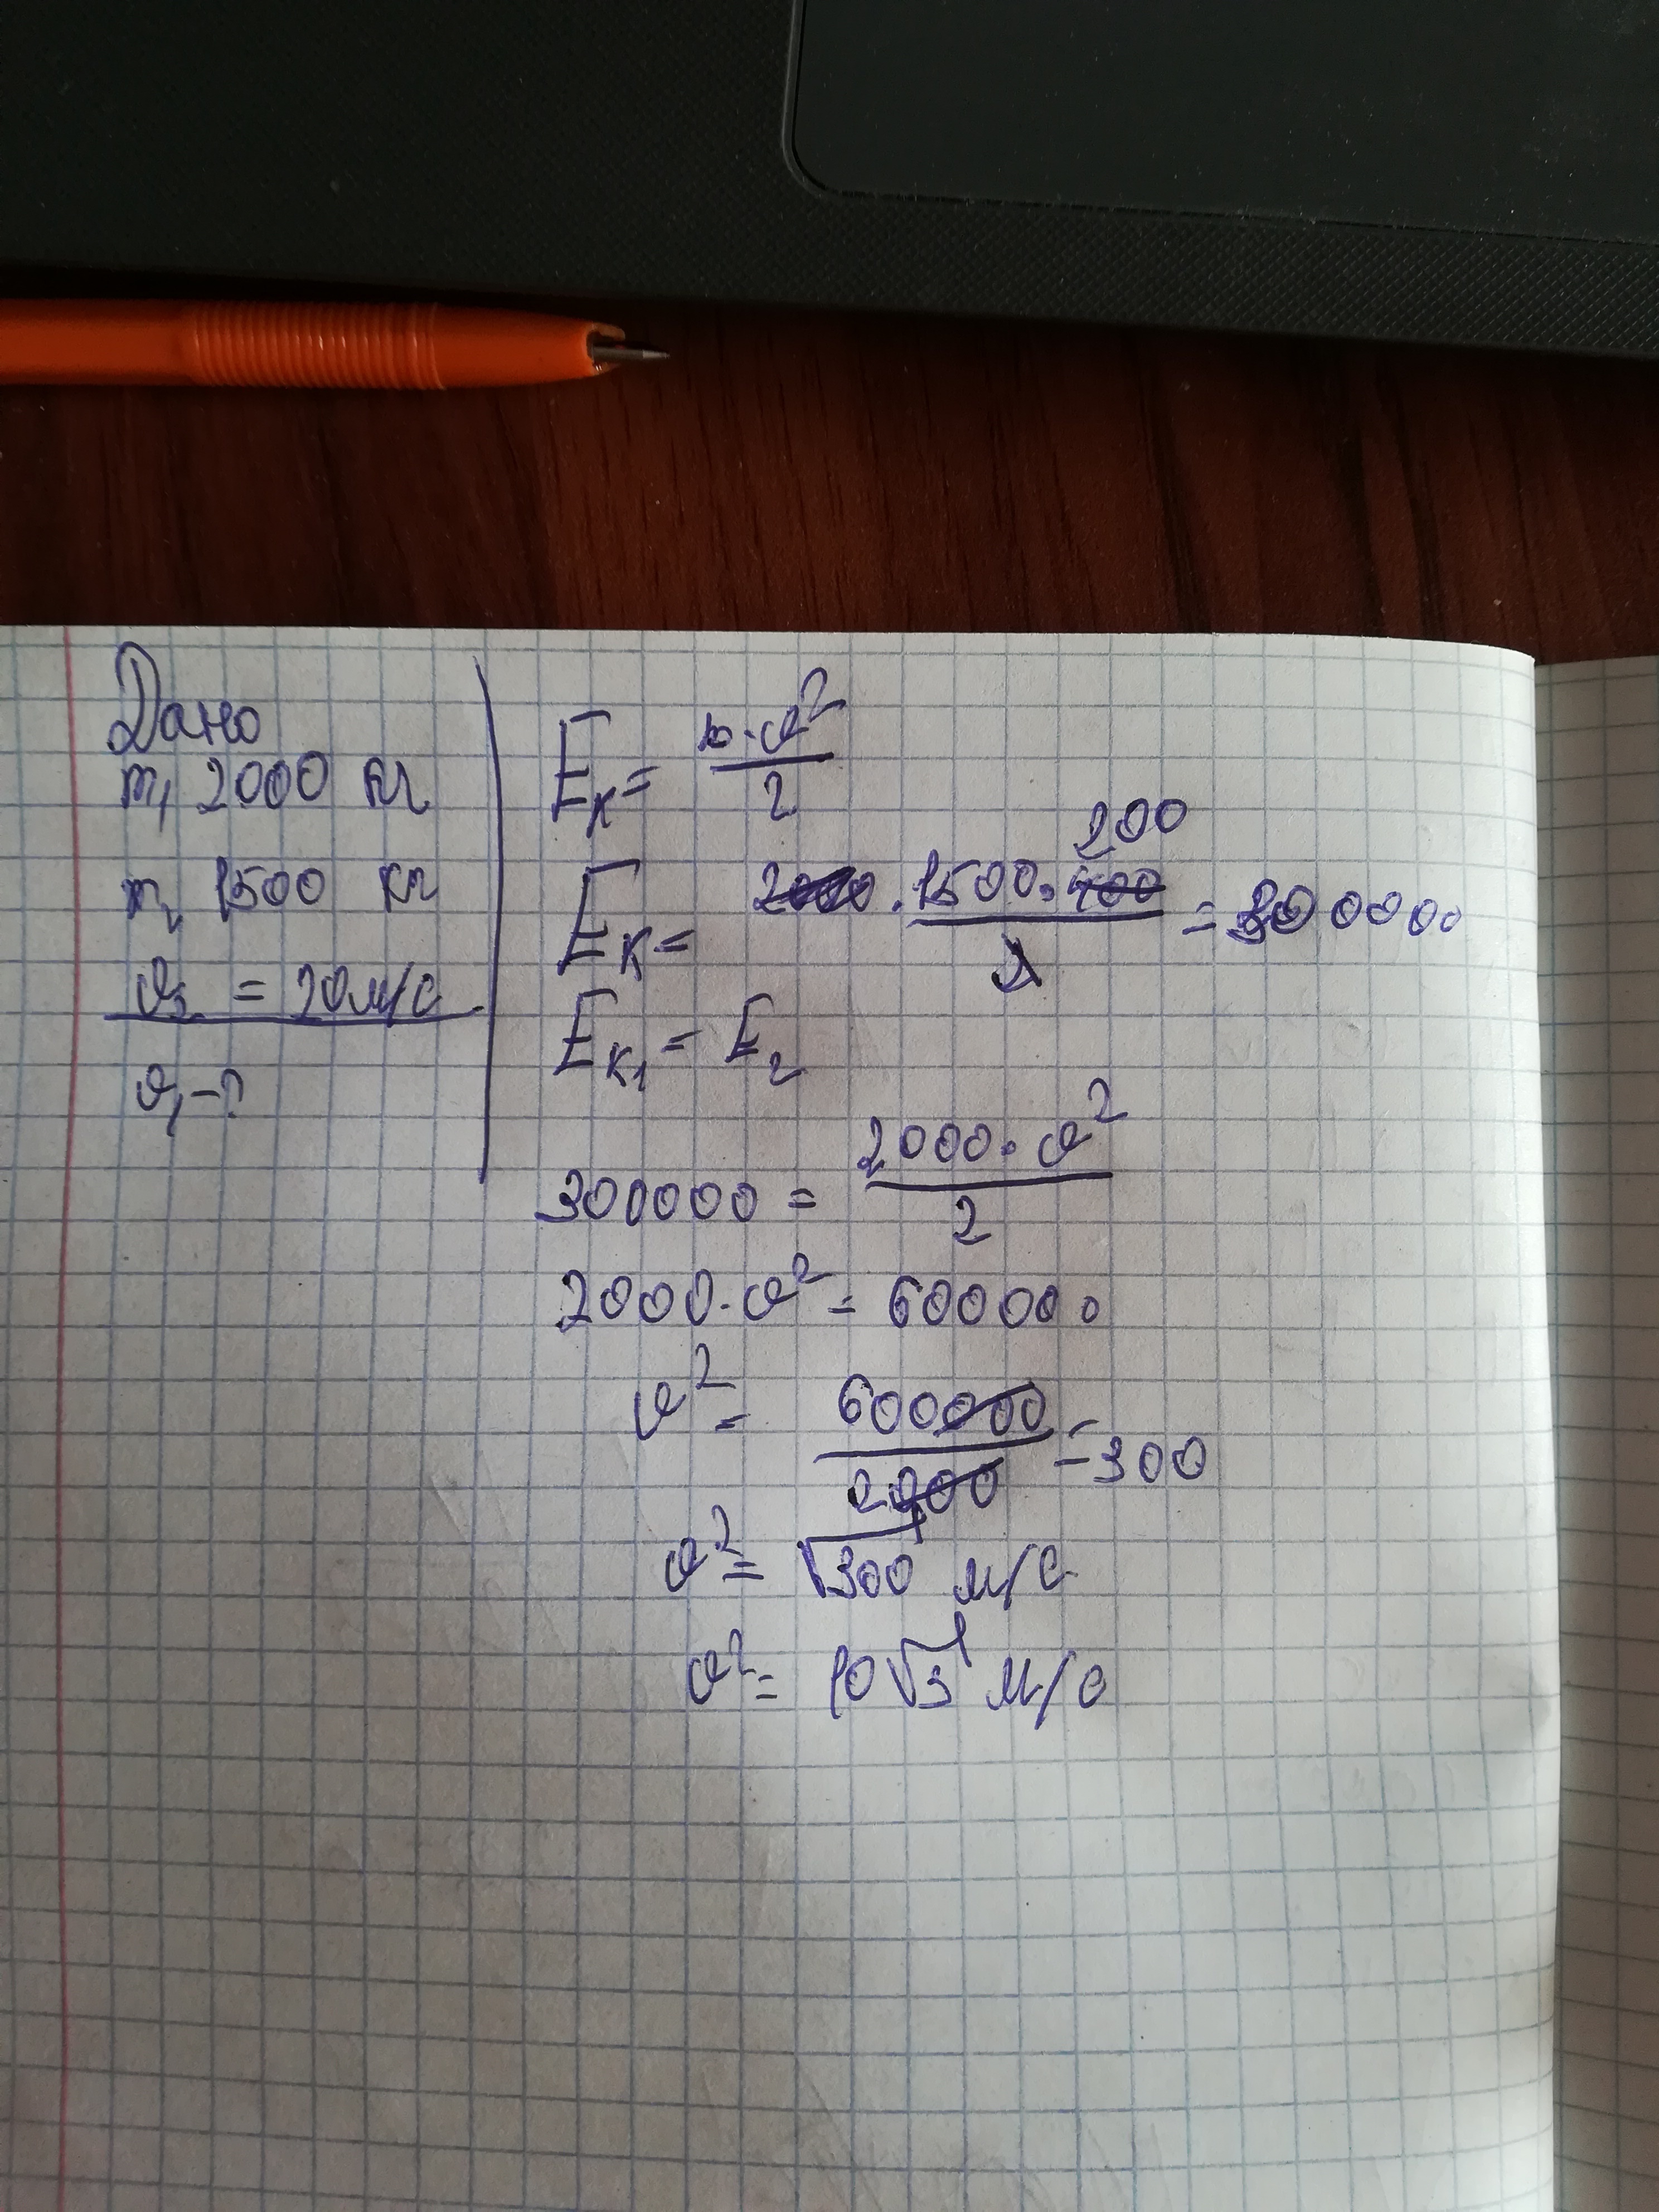 Дано
m₁ 2000 кг
m₂ 1500 кг
v₂ = 20м/с
v₁ - ?
Eк = m·v²/2
Eк = 1500·400/2 = 300000
200
Eк₁ = E₂
300000 = 2000·v²/2
2000·v² = 600000
v² = 600000/2000 = 300
v² = √300 м/с
v² = 10√3 м/с